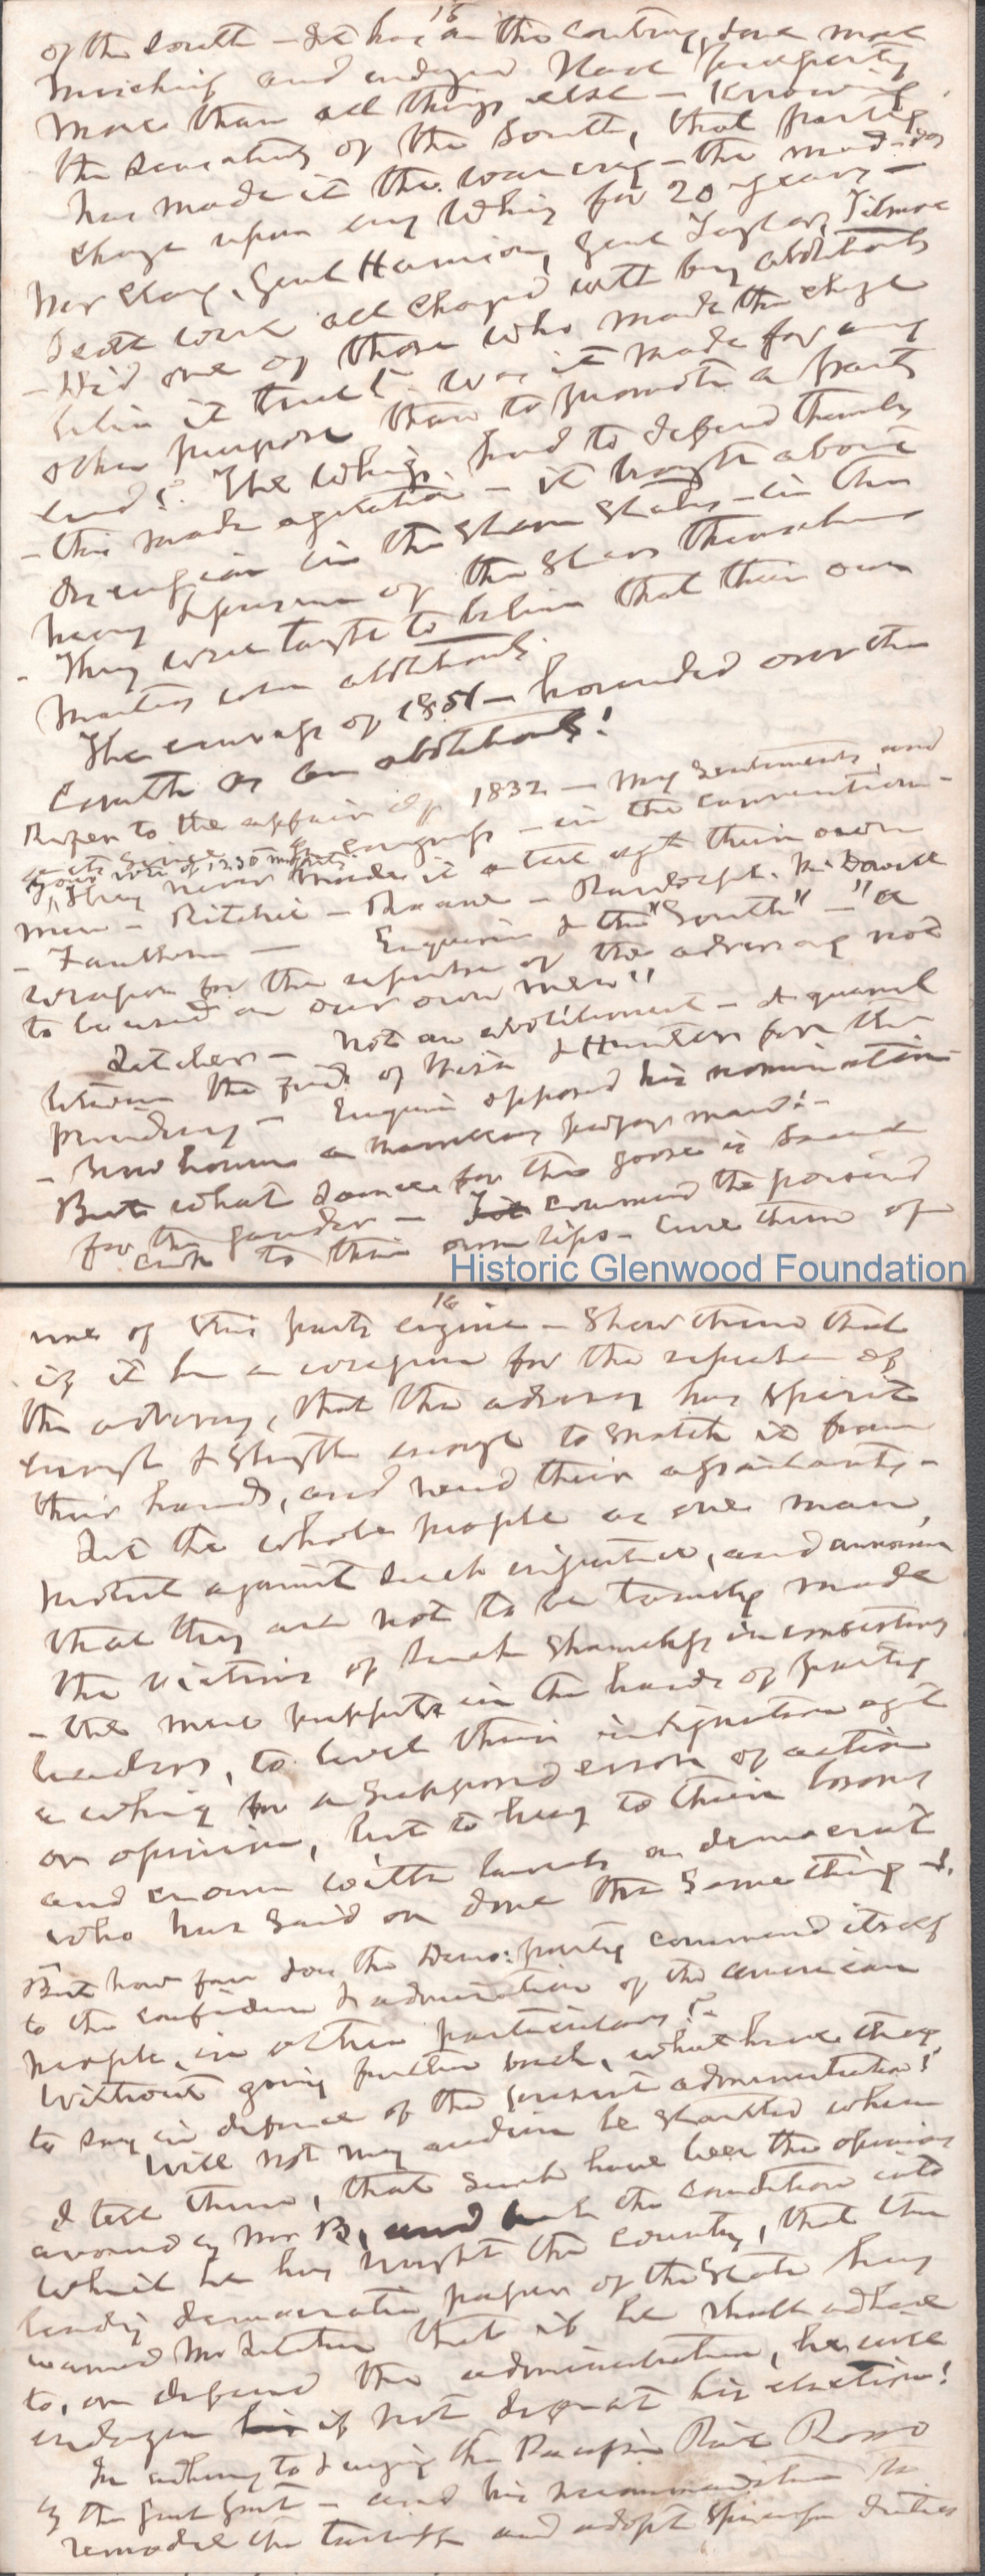 15
of the South – It has on the contrary, done more
mischief and endangered Slave property
more than all things else – Knowing
the sensativity of the South, that party
has made it the war cry – the mad-dog
charge upon every Whig for 20 years –
Mr Clay, Genl Harrison, Genl Taylor, Filmore
Scott were all charged with being abolitionists
– Did one of those who made the charge
believe it true? Was it made for any
other purpose than to promote a party
end? The Whigs had to defend themselves
– this made agitation – it brought about
discussion in the Slave States – in the
very presence of the Slaves themselves
– They were taught to believe that their own
Masters were abolitionists.
The canvass of 1851 – hounded over the
County as an abolitionist!
Refer to the affair of 1832 – My Sentiments, and
acts since – in Congress – in the convention
They never made it a test agt their own
men – Ritchie – Roane – Randolph, McDowell
– Faulkner – Enquirer & the "South" – "a
weapon for the use of the adversary not
to be used on our own men"
Letcher – Not an abolitionist – A quarrel
between the friends of Wise & Hunter for the
presidency – Enquirer opposed his nomination
–
But what sauce for the goose is sauce
for the gander – commend the poisoned
cup to their own lips – cure them of
Historic Glenwood Foundation
16
use of this party engine – Show them that
if it be a weapon for the use of
the adversary, that the adversary has spirit
enough & strength enough to snatch it from
their hands, and rend their assailants –
Let the whole people as one man,
protest against such injustice, and announce
that they are not to be tamely made
the victims of such shameless inconsistency
– the mere puppets in the hands of party
leaders, to level their indignation agt
a whig for a supposed error of action
or opinion, but to hug to their bosoms
and crown with laurels a democrat
who has said or done the same thing –
But how far does the Demo: party commend itself
to the confidence & admiration of the american
people, in other particulars? –
Without going further back, what have they
to say in defence of the present administration?
Will not my audience be startled when
I tell them, that such have been the opinions
avowed by Mr B, and such the condition into
which he has brought the country, that the
leading democratic papers of the State have
warned Mr Letcher that if he shall adhere
to, or defend the administration, he will
endanger if not defeat his election!
In adhering to & urging the Pacific Rail Road
by the Genl Govt – and his recommendation to
remodel the tariff and adopt specific duties